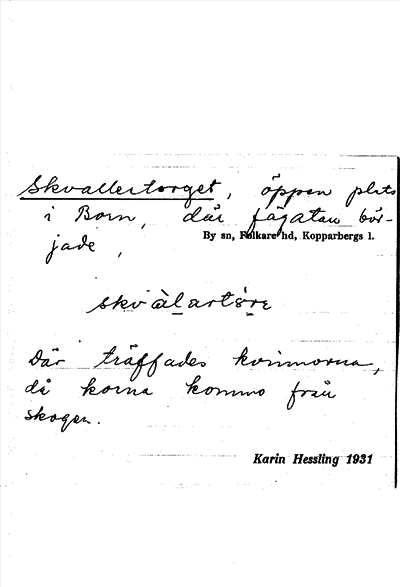 Skvallertorget, öppen plats
i Born, där fägatan bör-
By sn, Folkare hd, Kopparbergs l.
jade,
skvàlartòre
Där träffades kvinnorna,
då korna kommo från
skogen.
Karin Hessling 1931